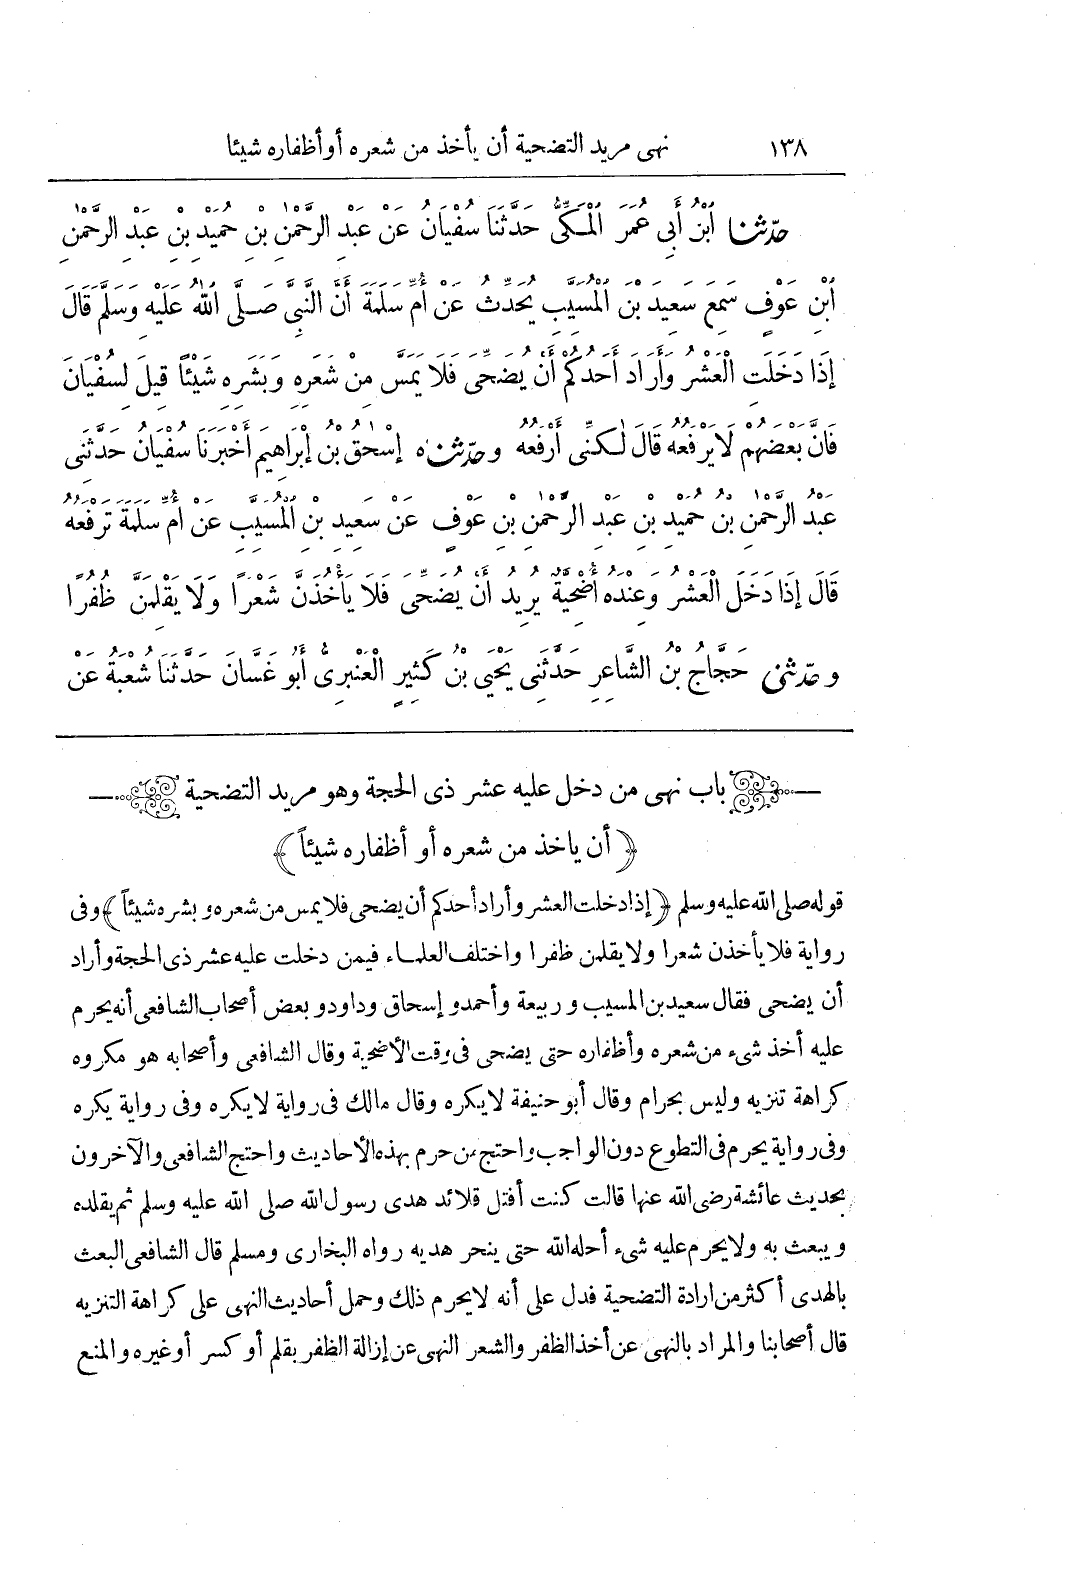 ١٣٨ نهى مريد التضحية أن يأخذ من شعره أو أظفاره شيئا
حدّثنا ابْنُ أَبِي عُمَرَ الْمَكِّىُّ حَدَّثَنَا سُفْيَانُ عَنْ عَبْدِ الرَّحْمٰنِ بْنِ حُمَيْدِ بْنِ عَبْدِ الرَّحْمٰنِ
ابْنِ عَوْفٍ سَمِعَ سَعِيدَ بْنَ الْمُسَيَّبِ يُحَدِّثُ عَنْ أُمِّ سَلَمَةَ أَنَّ النَّبِيَّ صَلَّى اللّٰهُ عَلَيْهِ وَسَلَّمَ قَالَ
إِذَا دَخَلَتِ الْعَشْرُ وَأَرَادَ أَحَدُكُمْ أَنْ يُضَحِّىَ فَلَا يَمَسَّ مِنْ شَعَرِهِ وَبَشَرِهِ شَيْئًا قِيلَ لِسُفْيَانَ
فَإِنَّ بَعْضَهُمْ لَا يَرْفَعُهُ قَالَ لٰكِنِّى أَرْفَعُهُ و حدّثناه إِسْحٰقُ بْنُ إِبْرَاهِيمَ أَخْبَرَنَا سُفْيَانُ حَدَّثَنِى
عَبْدُ الرَّحْمٰنِ بْنُ حُمَيْدِ بْنِ عَبْدِ الرَّحْمٰنِ بْنِ عَوْفٍ عَنْ سَعِيدِ بْنِ الْمُسَيَّبِ عَنْ أُمِّ سَلَمَةَ تَرْفَعُهُ
قَالَ إِذَا دَخَلَ الْعَشْرُ وَعِنْدَهُ أُضْحِيَّةٌ يُرِيدُ أَنْ يُضَحِّىَ فَلَا يَأْخُذَنَّ شَعْرًا وَلَا يَقْلِمَنَّ ظُفُرًا
و حدّثنى حَجَّاجُ بْنُ الشَّاعِرِ حَدَّثَنِى يَحْيَى بْنُ كَثِيرٍ الْعَنْبَرِىُّ أَبُو غَسَّانَ حَدَّثَنَا شُعْبَةُ عَنْ
باب نهى من دخل عليه عشر ذى الحجة وهو مريد التضحية
﴿ أن يأخذ من شعره أو أظفاره شيئاً ﴾
قوله صلى الله عليه وسلم ﴿ إذا دخلت العشر وأراد أحدكم أن يضحى فلا يمس من شعره وبشره شيئاً ﴾ وفى
رواية فلا يأخذن شعرا ولا يقلمن ظفرا واختلف العلماء فيمن دخلت عليه عشر ذى الحجة وأراد
أن يضحى فقال سعيد بن المسيب وربيعة وأحمد وإسحاق وداود وبعض أصحاب الشافعى أنه يحرم
عليه أخذ شىء من شعره وأظفاره حتى يضحى فى وقت الأضحية وقال الشافعى وأصحابه هو مكروه
كراهة تنزيه وليس بحرام وقال أبو حنيفة لا يكره وقال مالك فى رواية لا يكره وفى رواية يكره
وفى رواية يحرم فى التطوع دون الواجب واحتج من حرم بهذه الأحاديث واحتج الشافعى والآخرون
بحديث عائشة رضى الله عنها قالت كنت أفتل قلائد هدى رسول الله صلى الله عليه وسلم ثم يقلده
ويبعث به ولا يحرم عليه شىء أحله الله حتى ينحر هديه رواه البخارى ومسلم قال الشافعى البعث
بالهدى أكثر من ارادة التضحية فدل على أنه لا يحرم ذلك وحمل أحاديث النهى على كراهة التنزيه
قال أصحابنا والمراد بالنهى عن أخذ الظفر والشعر النهى عن إزالة الظفر بقلم أو كسر أو غيره والمنع